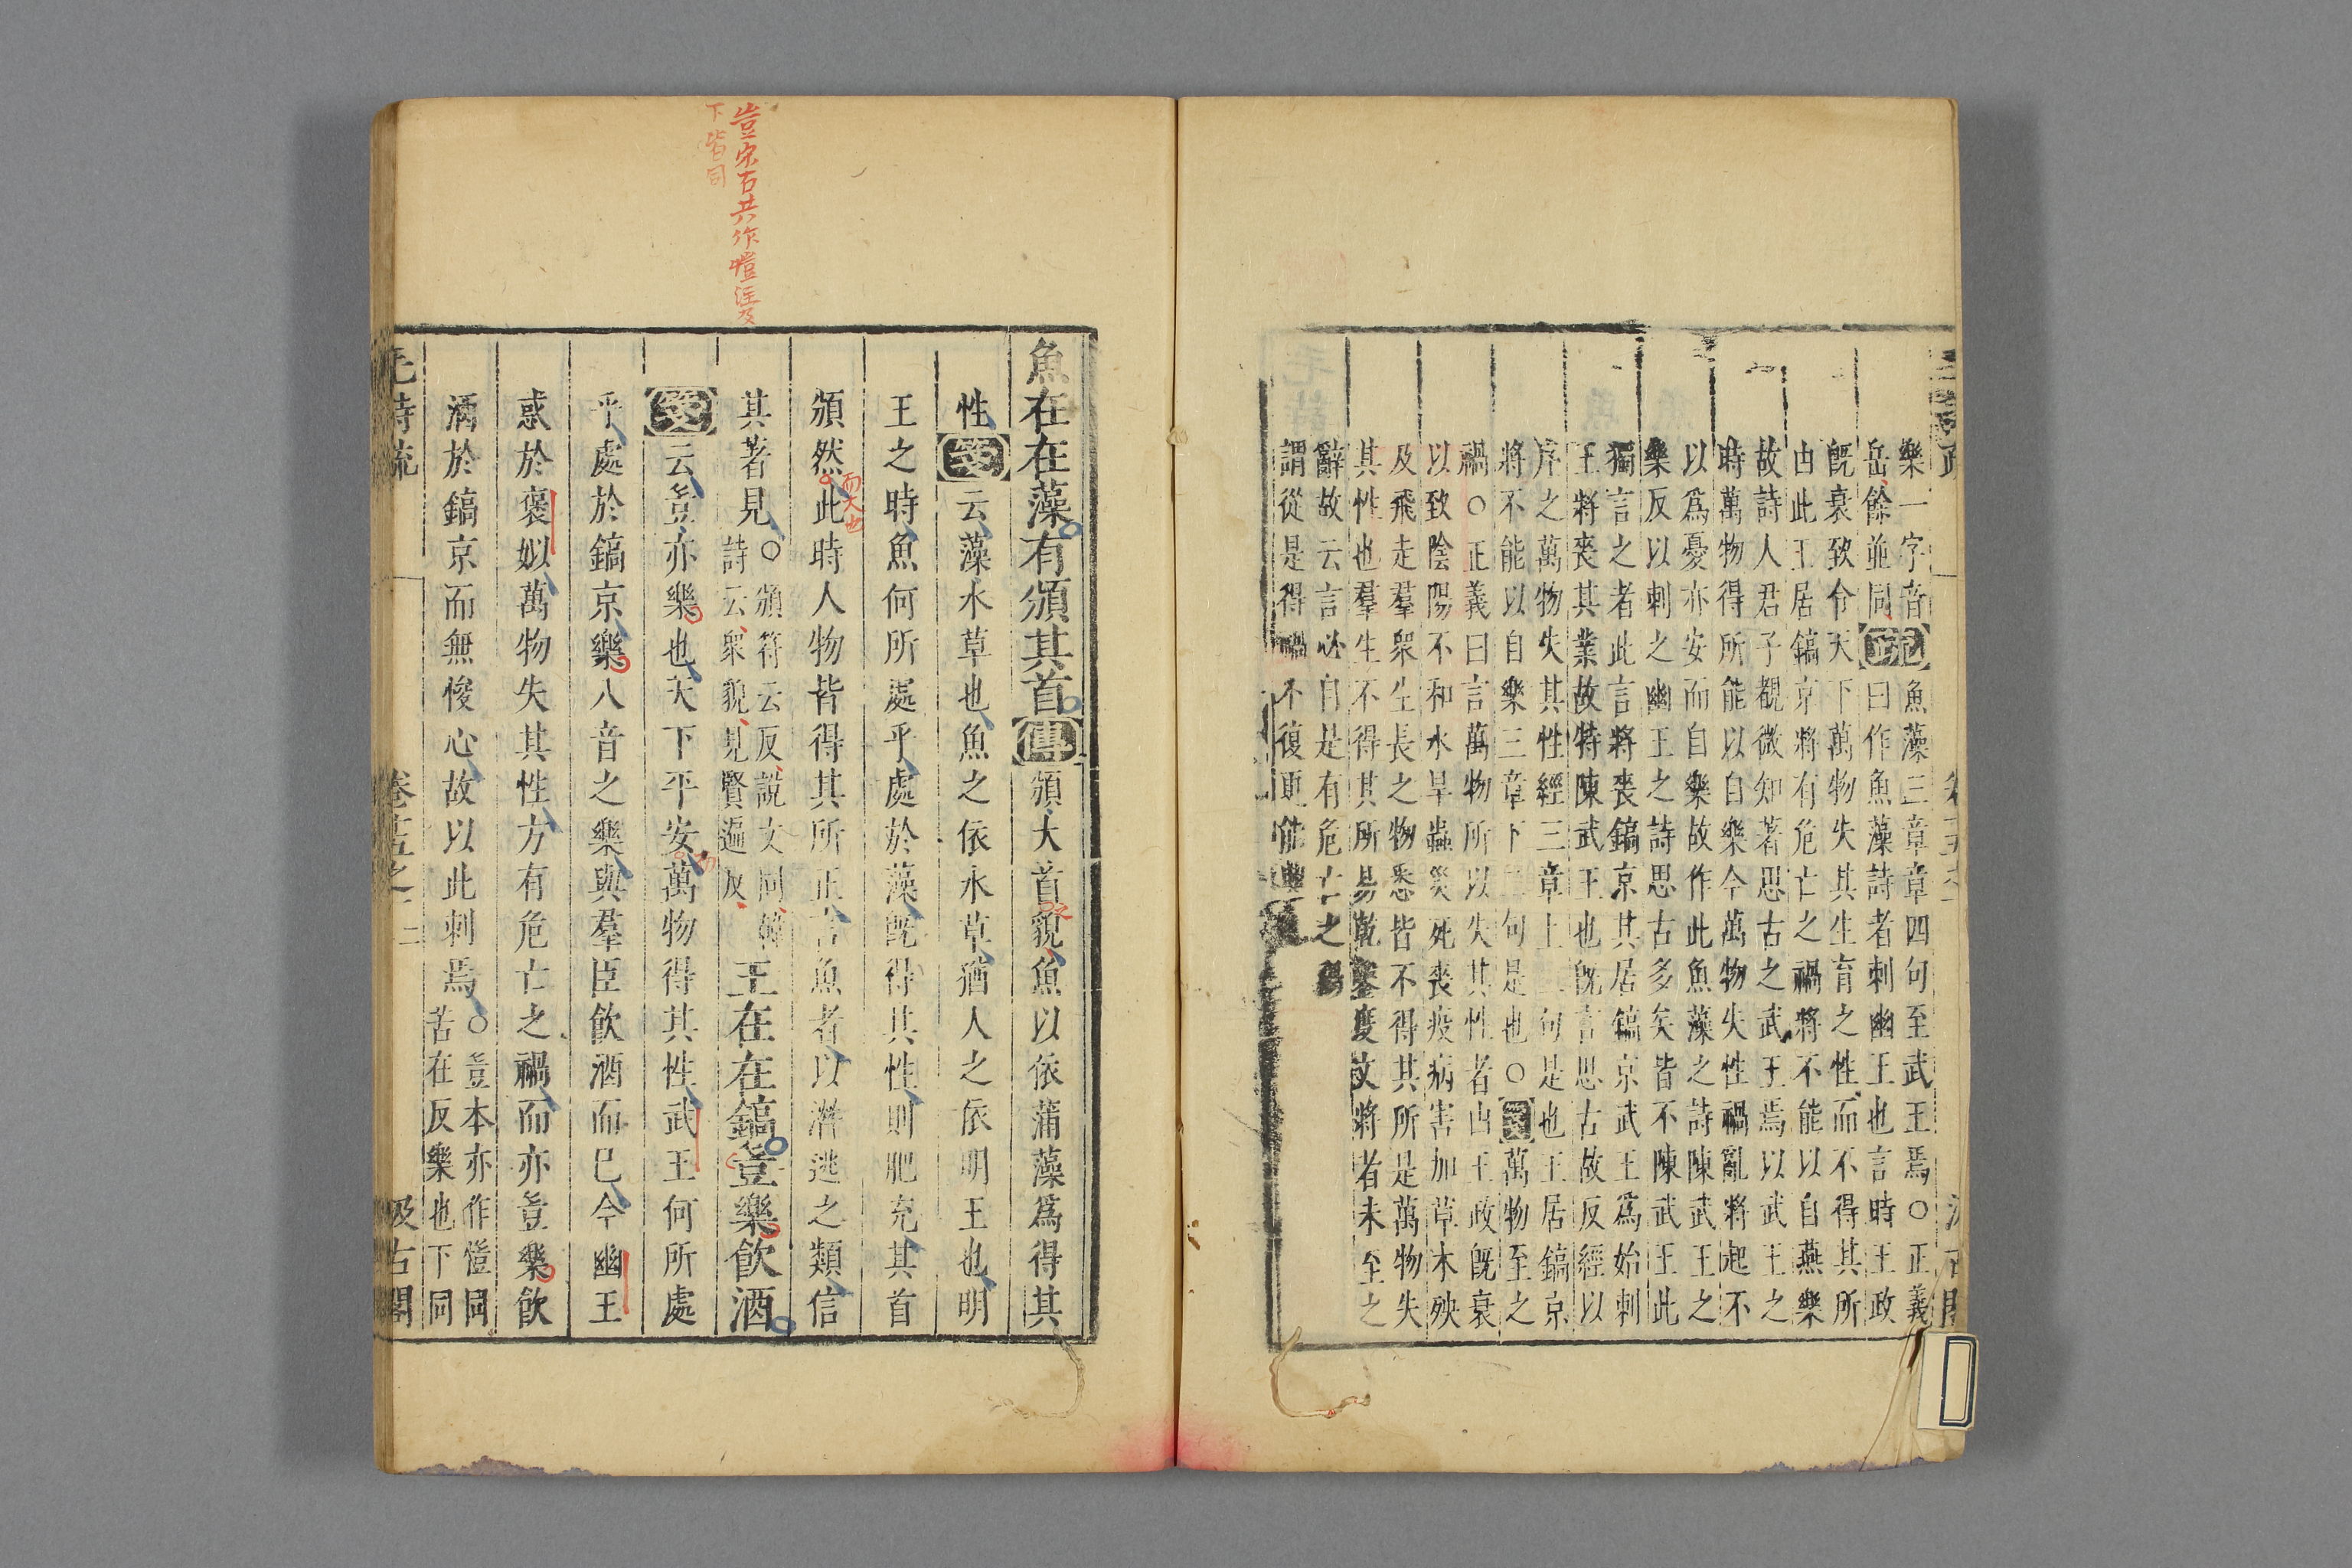 樂一字音
岳餘並同
疏魚藻三章章四句至武王焉○正義
正曰作魚藻詩者刺幽王也言時王政
既衰致令天下萬物失其生育之性而不得其所
由此王居鎬京將有危亡之禍將不能以自燕樂
故詩人君子覩微知著思古之武王焉以武王之
時萬物得所能以自樂今萬物失性禍亂將起不
以爲憂亦安而自樂故作此魚藻之詩陳武王之
樂反以刺之幽王之詩思古多矣皆不陳武王此
獨言之者此言將喪鎬京其居鎬京武王爲始刺
王將喪其業故特陳武王也既言思古故反經以
序之萬物失其性經三章上二句是也王居鎬京
將不能以自樂三章下二句是也○箋萬物至之
禍○正義曰言萬物所以失其性者由王政既衰
以致陰陽不和水旱蟲災死喪疫病害加草木殃
及飛走羣眾生長之物悉皆不得其所是萬物失
其性也羣生不得其所易乾鑿度文將者未至之
辭故云言必自是有危亡之禍
謂從是得禍不復更能興
魚在在藻有頒其首傳頒大首貌魚以依蒲藻爲得其
性箋云藻水草也魚之依水草猶人之依明王也明
王之時魚何所處乎處於藻既得其性則肥充其首
頒然此時人物皆得其所正言魚者以潛逃之類信
而大也
其著見○頒符云反說文同韓
詩云眾貌見賢遍反
王在在鎬豈樂飲酒
箋云豈亦樂也天下平安萬物得其性武王何所處
乎處於鎬京樂八音之樂與羣臣飲酒而已今幽王
惑於褒姒萬物失其性方有危亡之禍而亦豈樂飲
酒於鎬京而無悛心故以此刺焉○豈本亦作愷同
苦在反樂也下同
豈宋石共作愷注及
下皆同
毛詩疏 卷十五之一 二 汲古閣